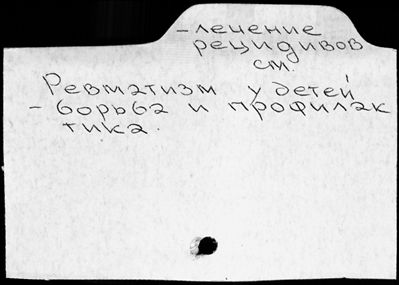 - лечение
рецидивов
см.
Ревматизм у детей
- борьба и профилак
тика.